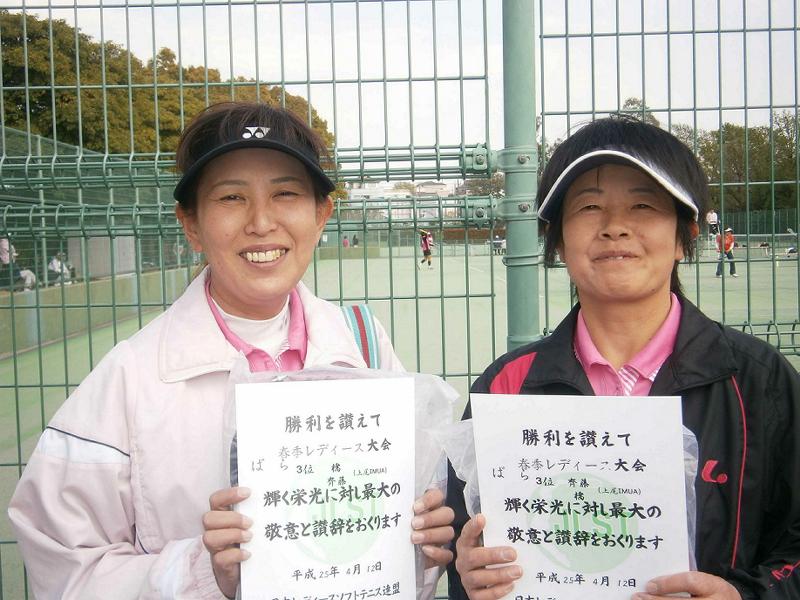 勝利を讃えて
春季レディース大会
ばら 3位 橋 (上尾IMUA)
齊藤
輝く栄光に対し最大の
敬意と讃辞をおくります
平成25年4月12日
日本レディースソフトテニス連盟
勝利を讃えて
春季レディース大会
ばら 3位 齊藤 (上尾IMUA)
橋
輝く栄光に対し最大の
敬意と讃辞をおくります
平成25年4月12日
日本レディースソフト